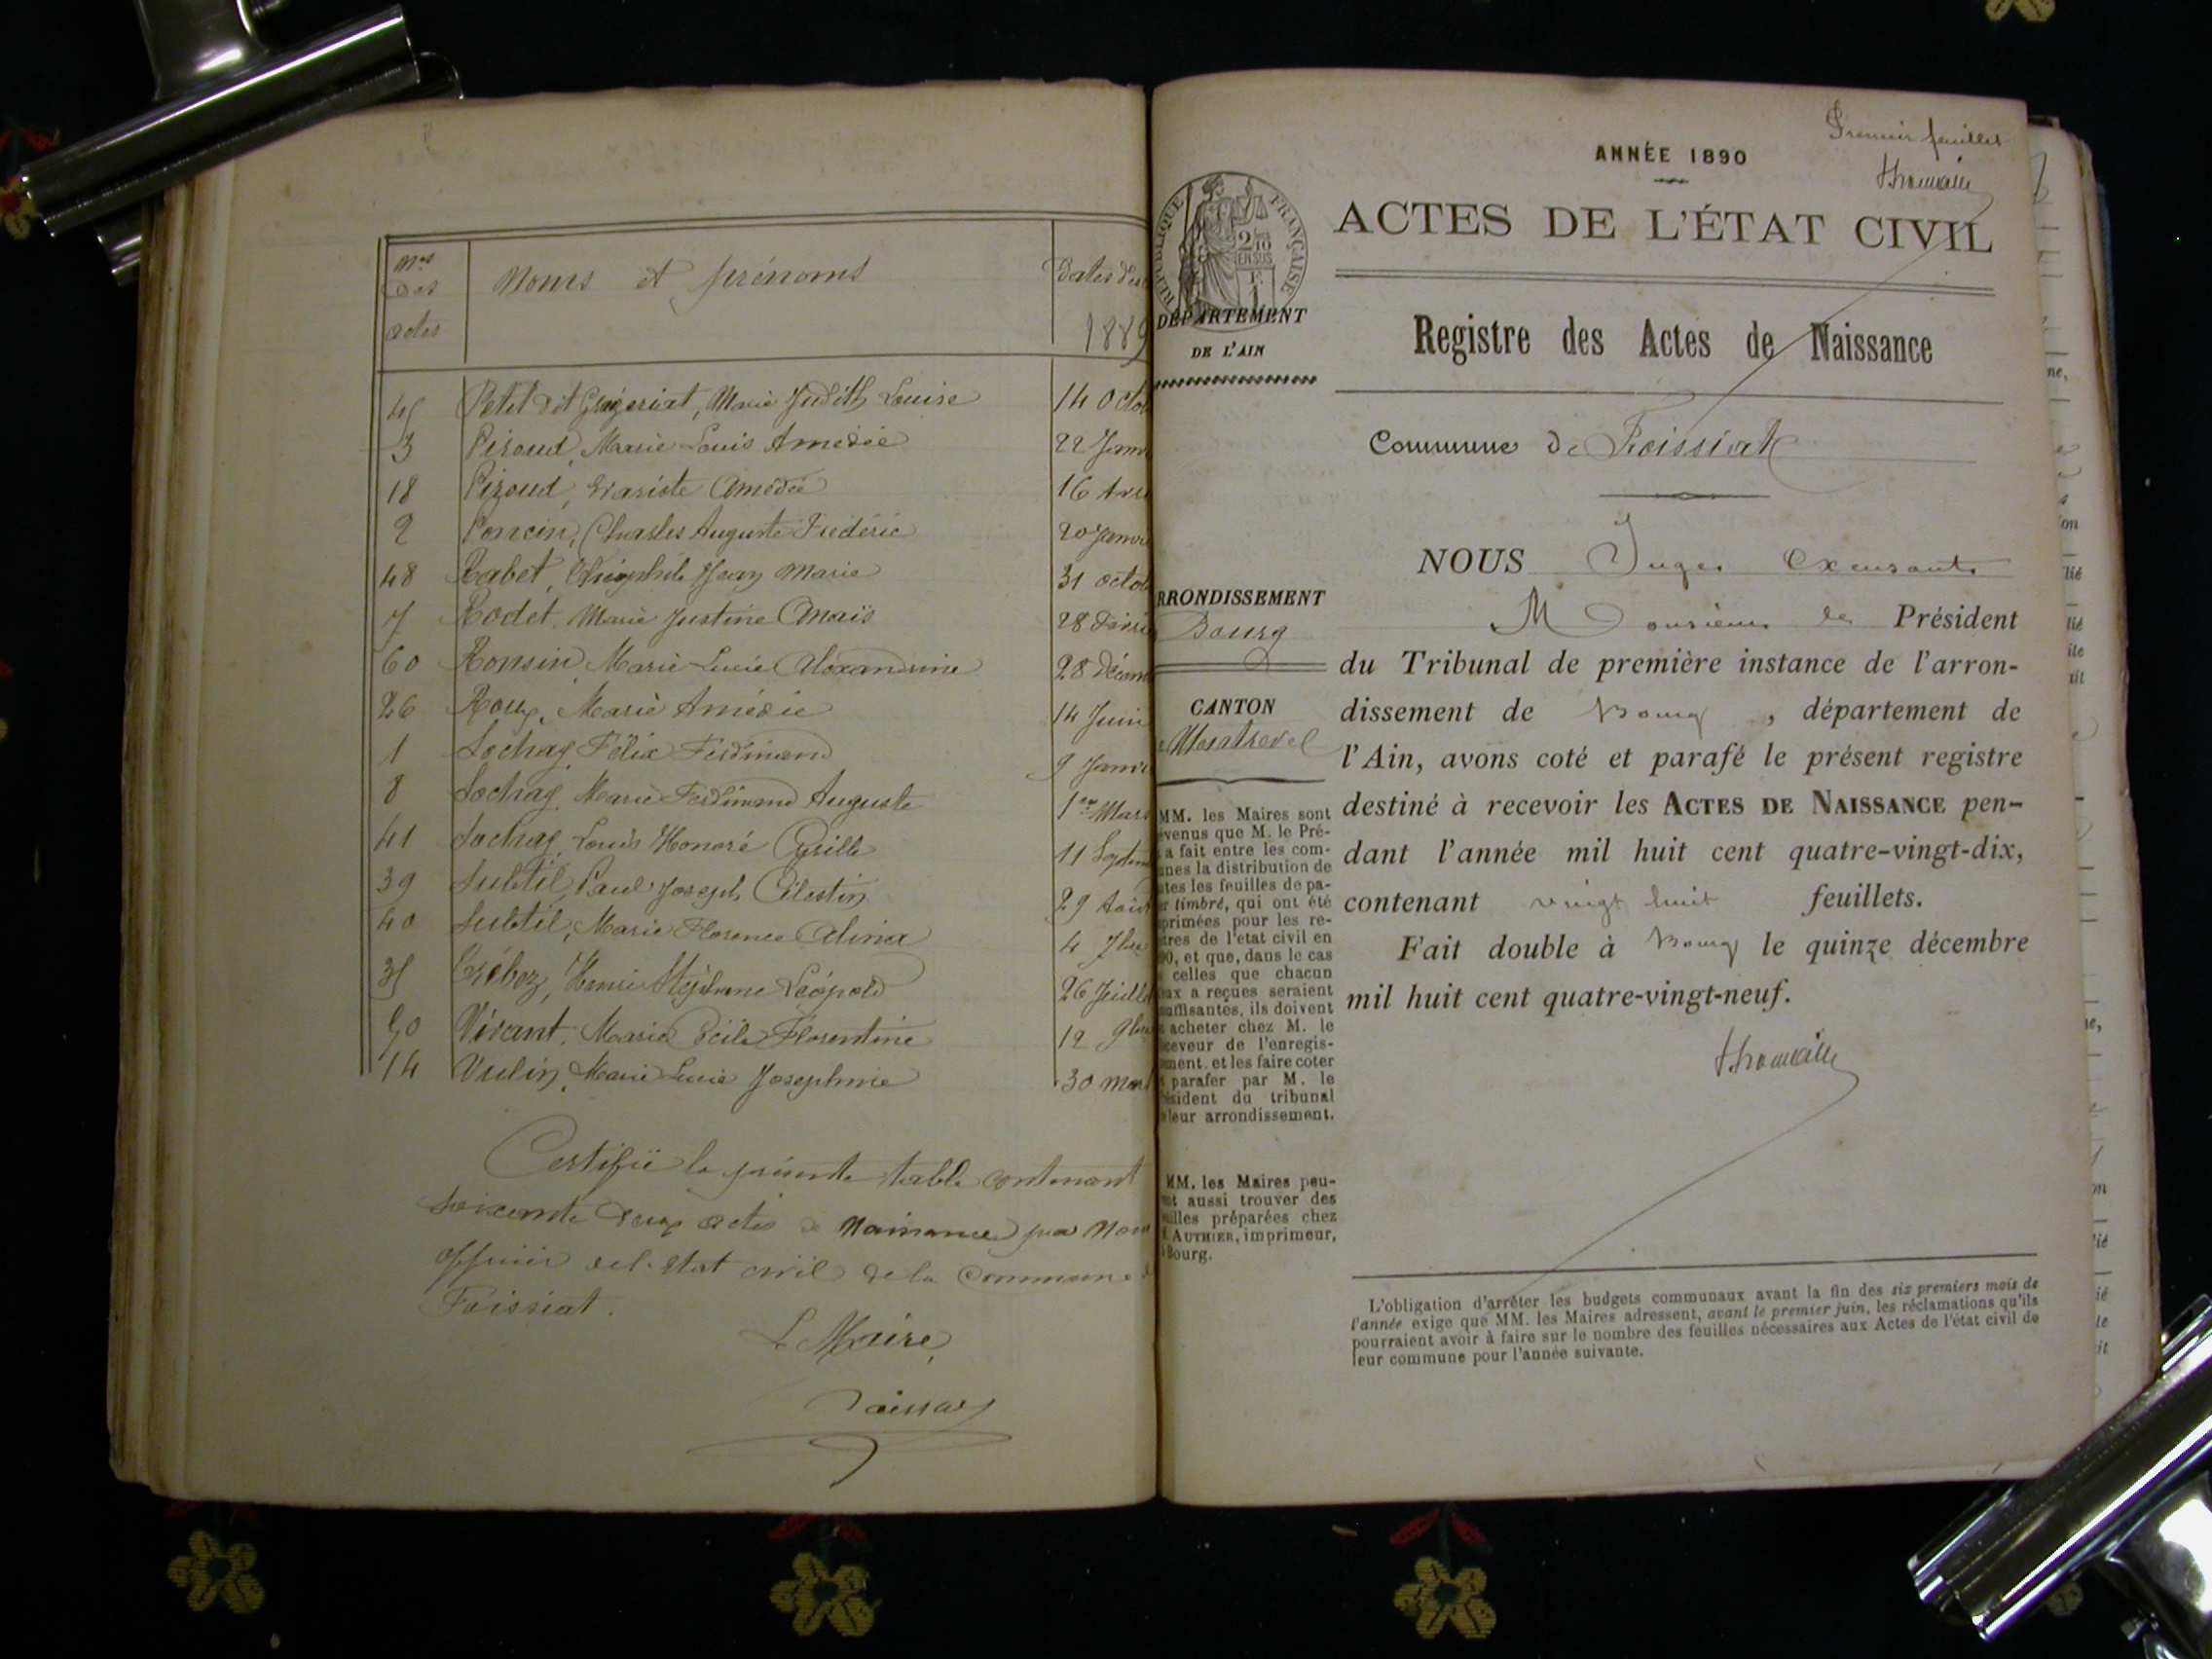 Nos
des
actes
Noms et prénoms
Dates des
1889
45 Petit dit Grezeriat, Marie Judith Louise 14 Octo
3 Piroud, Marie Louis Amédée 22 Janv
18 Piroud, Evariste Amédée 16 Avri
2 Poncin, Charles Auguste Frédéric 20 Janvi
48 Rabet, Théophile Jean Marie 31 octob
7 Rodet, Marie Justine Anaïs 28 Févri
60 Ronsin, Marie Lucie Alexandrine 28 Décem
26 Roux, Marie Amédée 14 Juin
1 Sochay, Félix Ferdinand 9 Janvi
8 Sochay, Marie Ferdinand Auguste 1er Mars
41 Sochay, Louis Honoré Cyrille 11 Septem
39 Subtil, Paul Joseph Célestin 29 Août
40 Subtil, Marie Florence Alina 4 7bre
35 Tréboz, Henri Stéphane Léopold 26 Juillet
50 Vivant, Marie Cécile Florentine 12 9bre
14 Vulin, Marie Lucie Joséphine 30 mars
Certifié la présente table contenant
soixante deux actes de Naissance par Nous
officier de l'état civil de la Commune d
Foissiat.
Le Maire,
Premier feuillet
ANNÉE 1890
ACTES DE L'ÉTAT CIVIL
RÉPUBLIQUE FRANÇAISE
2/10
EN SUS
DÉPARTEMENT
DE L'AIN
Registre des Actes de Naissance
Commune de Foissiat
NOUS Juge Excusant
Monsieur le Président
du Tribunal de première instance de l'arron-
dissement de Bourg, département de
l'Ain, avons coté et parafé le présent registre
destiné à recevoir les ACTES DE NAISSANCE pen-
dant l'année mil huit cent quatre-vingt-dix,
contenant vingt huit feuillets.
Fait double à Bourg le quinze décembre
mil huit cent quatre-vingt-neuf.
RRONDISSEMENT
Bourg
CANTON
Montrevel
MM. les Maires sont
évenus que M. le Pré-
a fait entre les com-
unes la distribution de
utes les feuilles de pa-
r timbré, qui ont été
primées pour les re-
tres de l'état civil en
90, et que, dans le cas
celles que chacun
eux a reçues seraient
suffisantes, ils doivent
acheter chez M. le
ceveur de l'enregis-
ment, et les faire coter
parafer par M. le
ésident du tribunal
leur arrondissement.
MM. les Maires peu-
nt aussi trouver des
uilles préparées chez
AUTHIER, imprimeur,
Bourg.
L'obligation d'arrêter les budgets communaux avant la fin des six premiers mois de
l'année exige que MM. les Maires adressent, avant le premier juin, les réclamations qu'ils
pourraient avoir à faire sur le nombre des feuilles nécessaires aux Actes de l'état civil de
leur commune pour l'année suivante.